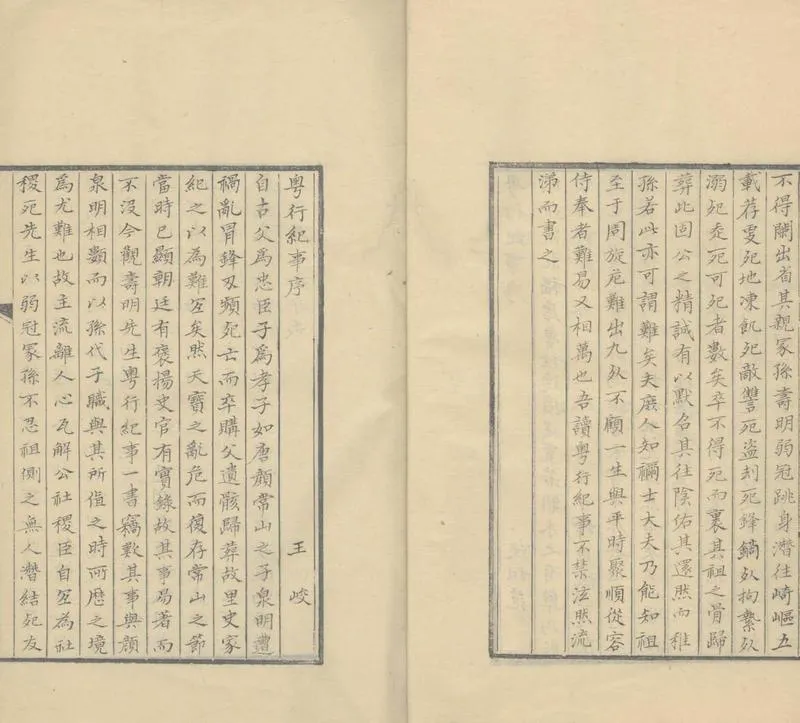 不得闗出省其親冢孫壽明弱冠跳身潛往崎嶇五
載荐更死地凍飢死敵讐死盜刦死鋒鏑死拘縶死
溺死焚死可死者數矣卒不得死而裹其祖之骨歸
葬此固公之精誠有以默召其往陰佑其還然而稚
孫若此亦可謂難矣夫庶人知禰士大夫乃能知祖
至于周旋危難出九死不顧一生與平時聚順從容
侍奉者難易又相萬也吾讀粵行紀事不禁泫然流
涕而書之
粵行紀事序
王峻
自古父為忠臣子為孝子如唐顏常山之子泉明遭
禍亂冒鋒刃頻死亡而卒購父遺骸歸葬故里史家
紀之以為難宜矣然天寶之亂危而復存常山之節
當時已顯朝廷有襃揚史官有實錄故其事易著而
不沒今觀壽明先生粵行紀事一書竊歎其事與顏
泉明相類而以孫代子職與其所值之時所歷之境
為尤難也故主流離人心瓦解公社稷臣自宜為社
稷死先生以弱冠冢孫不忍祖側之無人潛結死友